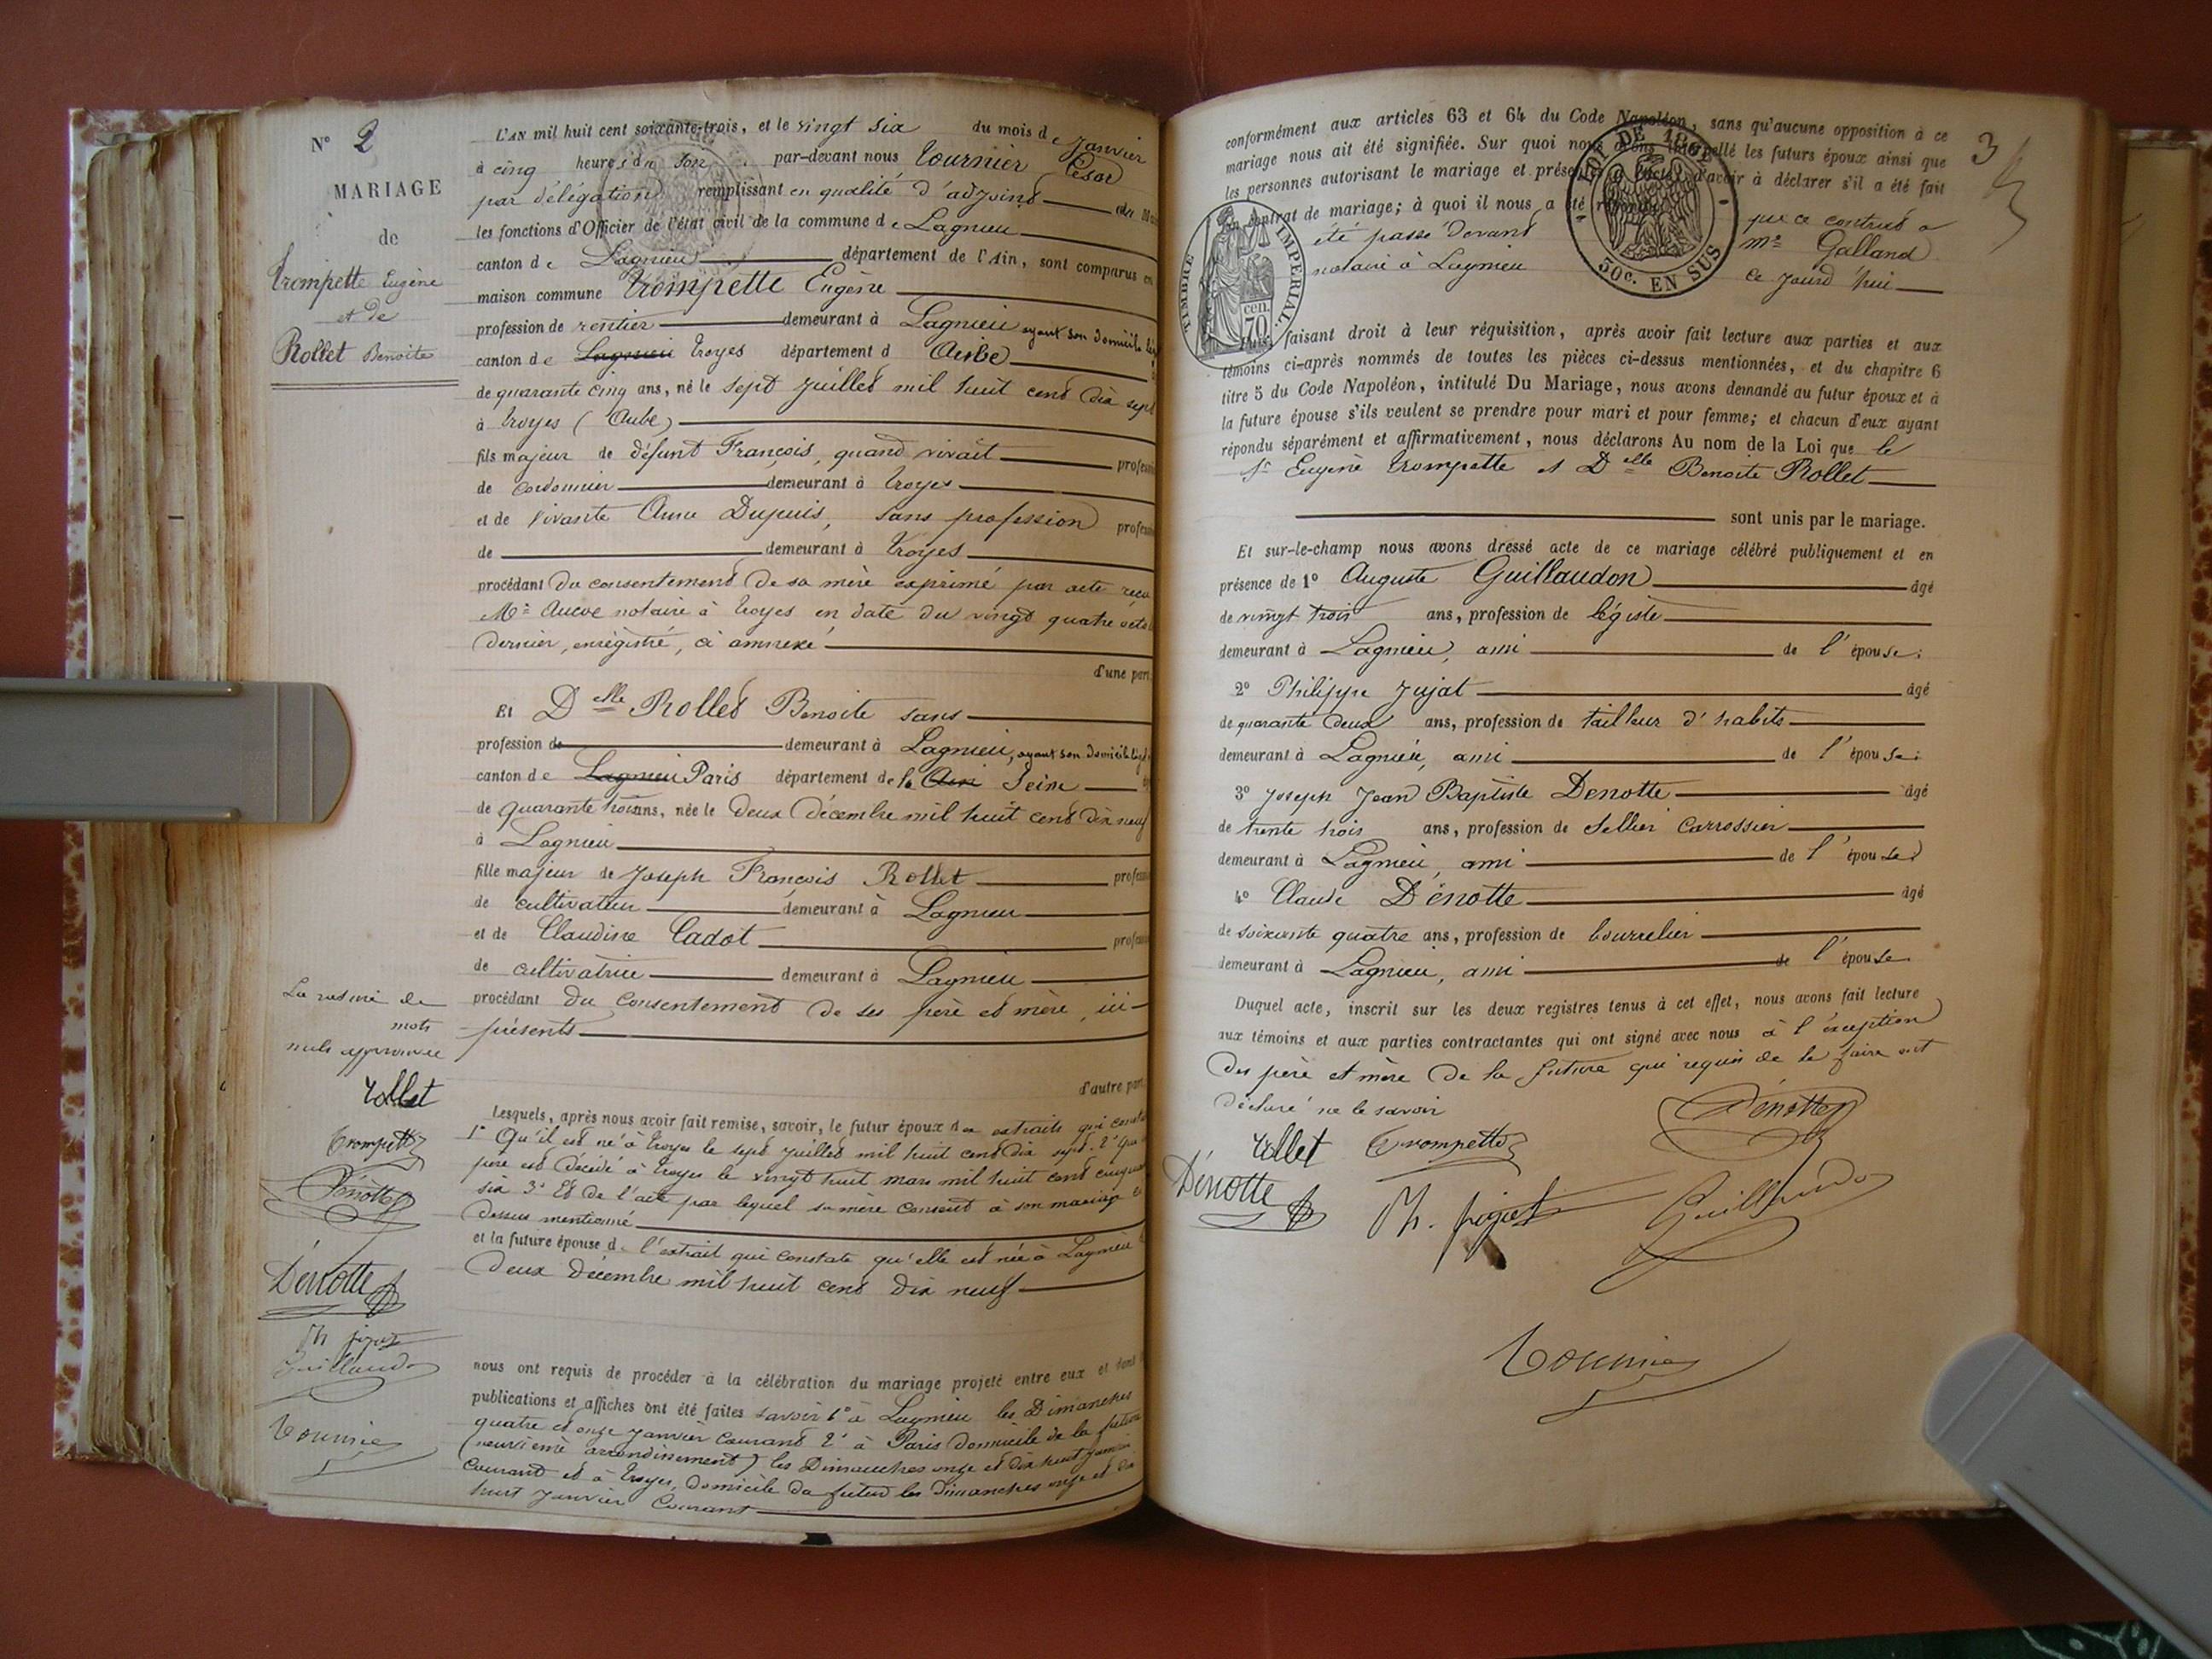 N° 2
MARIAGE
de
Trompette Eugène
et de
Rollet Benoite
L'AN mil huit cent soixante-trois, et le vingt six du mois de Janvier
à cinq heures du soir par-devant nous Tournier César
par délégation remplissant en qualité d'adjoint
les fonctions d'Officier de l'état civil de la commune de Lagnieu
canton de Lagnieu département de l'Ain, sont comparus en
maison commune Trompette Eugène
profession de rentier demeurant à Lagnieu ayant son domicile
canton de Lagnieu Troyes département d Aube
de quarante cinq ans, né le sept Juillet mil huit cent dix sept
à Troyes (Aube)
fils majeur de défunt François, quand vivait
de Cordonnier demeurant à Troyes
et de vivante Anne Dupuis, sans profession
de demeurant à Troyes
procédant du consentement de sa mère exprimé par acte reçu
Me notaire à Troyes en date du vingt quatre
dernier, enrégistré, ci annexé
d'une part.
Et Delle Rollet Benoite sans
profession de demeurant à Lagnieu, ayant son domicile
canton de Lagnieu Paris département de la Ain Seine
de quarante trois ans, née le deux décembre mil huit cent dix neuf
à Lagnieu
fille majeur de Joseph François Rollet
de cultivateur demeurant à Lagnieu
et de Claudine Cadot
de cultivatrice demeurant à Lagnieu
procédant du consentement de ses père et mère, ici
présents
d'autre part.
La rature de
mots
nuls approuvée
Rollet
Trompette
Dénotte
Dénotte
Ph
Guillaudon
Tournier
Lesquels, après nous avoir fait remise, savoir, le futur époux des extraits qui
1° Qu'il est né à Troyes le sept Juillet mil huit cent dix sept. 2° que
père est décédé à Troyes le vingt huit mars mil huit cent
six 3° Et de l'acte par lequel sa mère consent à son mariage
dessus mentionné
et la future épouse d. l'extrait qui constate qu'elle est née à Lagnieu
deux décembre mil huit cent dix neuf
nous ont requis de procéder à la célébration du mariage projeté entre eux et dont
publications et affiches ont été faites savoir 1° à Lagnieu les Dimanches
quatre et onze Janvier courant 2° à Paris domicile de la future
(neuvième arrondissement) les Dimanches onze et dix huit Janvier
Courant et à Troyes, domicile du futur les Dimanches onze et dix
huit Janvier Courant
3
conformément aux articles 63 et 64 du Code Napoléon, sans qu'aucune opposition à ce
mariage nous ait été signifiée. Sur quoi nous avons interpellé les futurs époux ainsi que
les personnes autorisant le mariage et présentes à l'acte, d'avoir à déclarer s'il a été fait
un contrat de mariage; à quoi il nous a été répondu que ce contrat a
été passé devant Me Galland
notaire à Lagnieu ce jourd'hui
TIMBRE IMPERIAL
cen.
70
LOI DE 1862
50c. EN SUS
faisant droit à leur réquisition, après avoir fait lecture aux parties et aux
témoins ci-après nommés de toutes les pièces ci-dessus mentionnées, et du chapitre 6
titre 5 du Code Napoléon, intitulé Du Mariage, nous avons demandé au futur époux et à
la future épouse s'ils veulent se prendre pour mari et pour femme; et chacun d'eux ayant
répondu séparément et affirmativement, nous déclarons Au nom de la Loi que le
Sr Eugène Trompette et Delle Benoite Rollet
sont unis par le mariage.
Et sur-le-champ nous avons dressé acte de ce mariage célébré publiquement et en
présence de 1° Auguste Guillaudon âgé
de vingt trois ans, profession de légiste
demeurant à Lagnieu, ami de l'épouse:
2° Philippe Jujat âgé
de quarante deux ans, profession de tailleur d'habits
demeurant à Lagnieu, ami de l'épouse:
3° Joseph Jean Baptiste Denotte âgé
de trente trois ans, profession de Sellier Carrossier
demeurant à Lagnieu, ami de l'épouse
4° Claude Dénotte âgé
de soixante quatre ans, profession de bourrelier
demeurant à Lagnieu, ami de l'épouse
Duquel acte, inscrit sur les deux registres tenus à cet effet, nous avons fait lecture
aux témoins et aux parties contractantes qui ont signé avec nous à l'exception
des père et mère de la future qui requis de le faire ont
déclaré ne le savoir
Dénotte
Rollet Trompette
Dénotte Ph. Guillaudon
Tournier